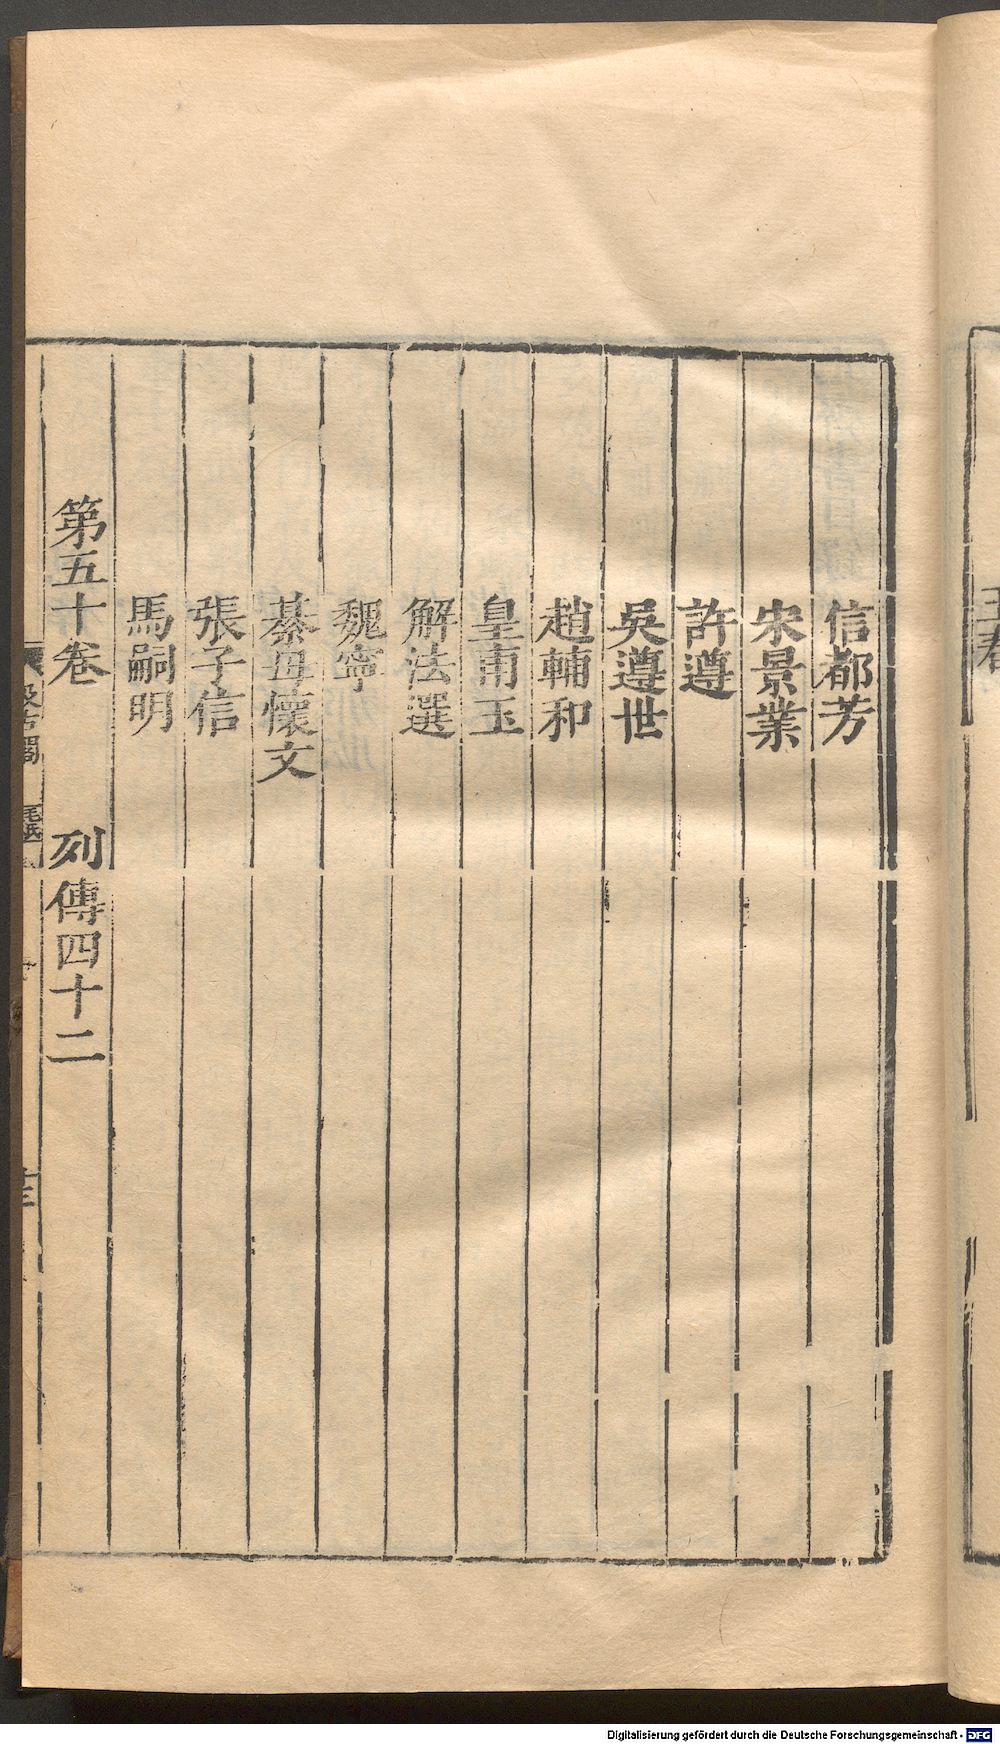 信都芳
宋景業
許遵
吳遵世
趙輔和
皇甫玉
解法選
魏寧
綦母懷文
張子信
馬嗣明
第五十卷 列傳四十二
Digitalisierung gefördert durch die Deutsche Forschungsgemeinschaft - DFG